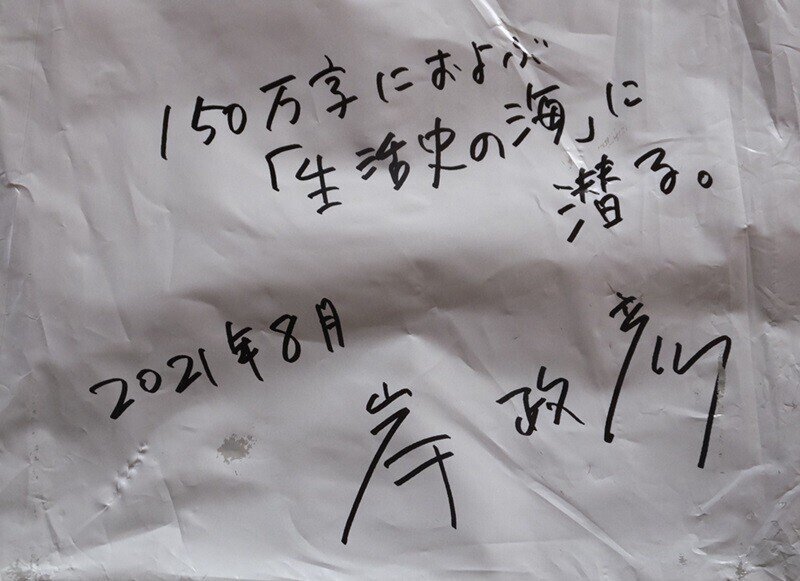 150万字におよぶ
「生活史の海」に
潜る。
2021年8月
岸政彦